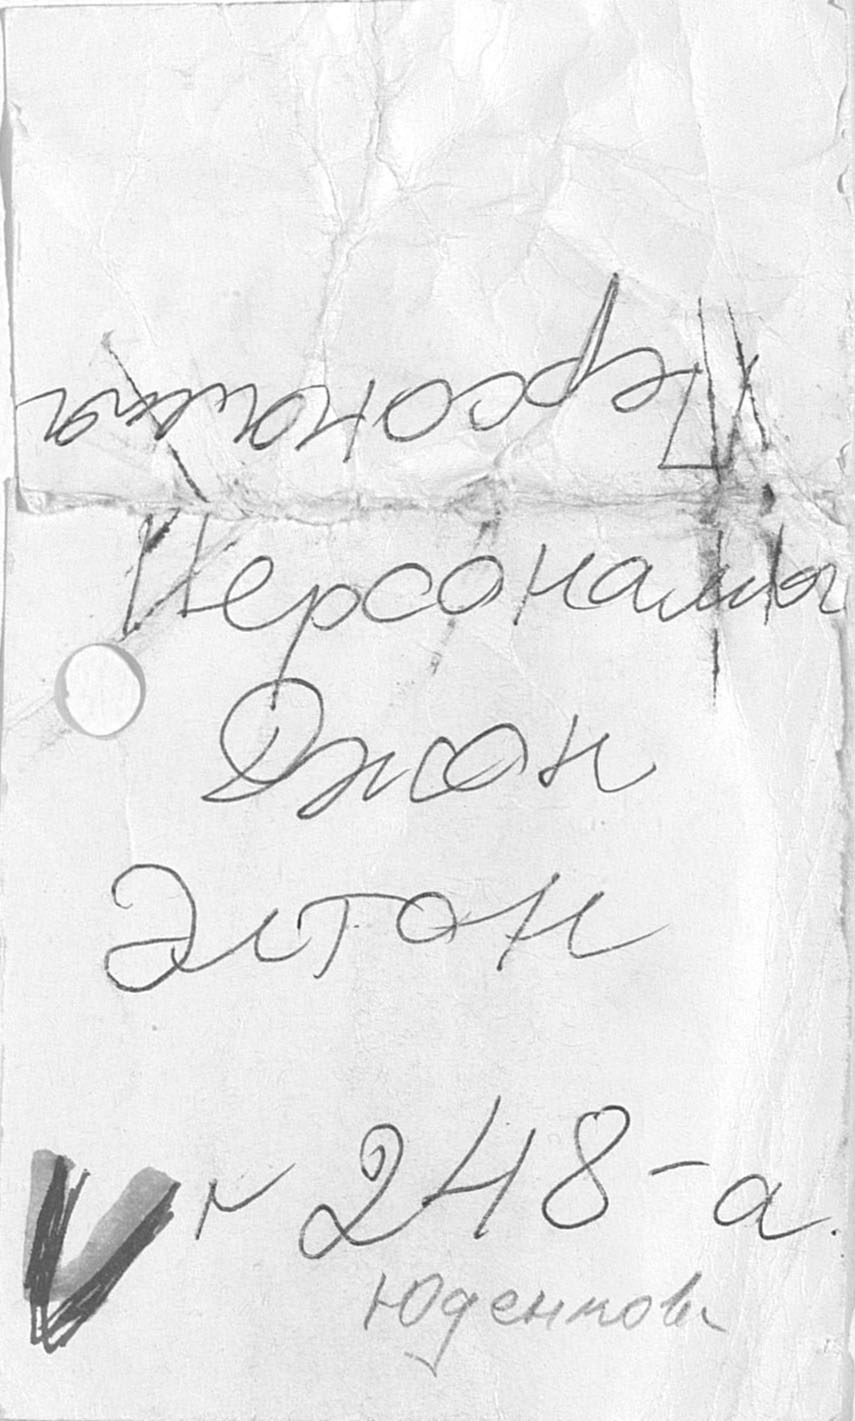 Персоналия
Персоналия
Джон
Элтон
N 248-а.
Юденков